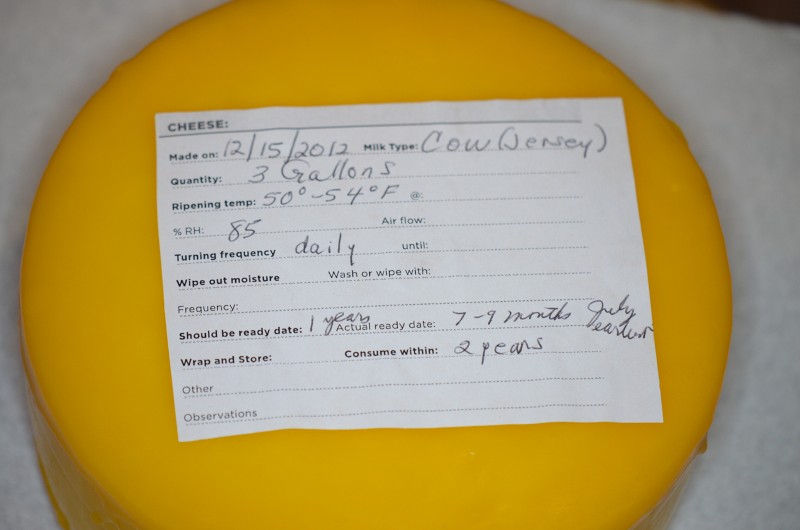 CHEESE:
Made on: 12/15/2012 Milk Type: Cow (Jersey)
Quantity: 3 Gallons
Ripening temp: 50°-54°F @:
% RH: 85 Air flow:
Turning frequency daily until:
Wipe out moisture Wash or wipe with:
Frequency:
Should be ready date: 1 years Actual ready date: 7-9 months July earliest
Wrap and Store: Consume within: 2 years
Other
Observations